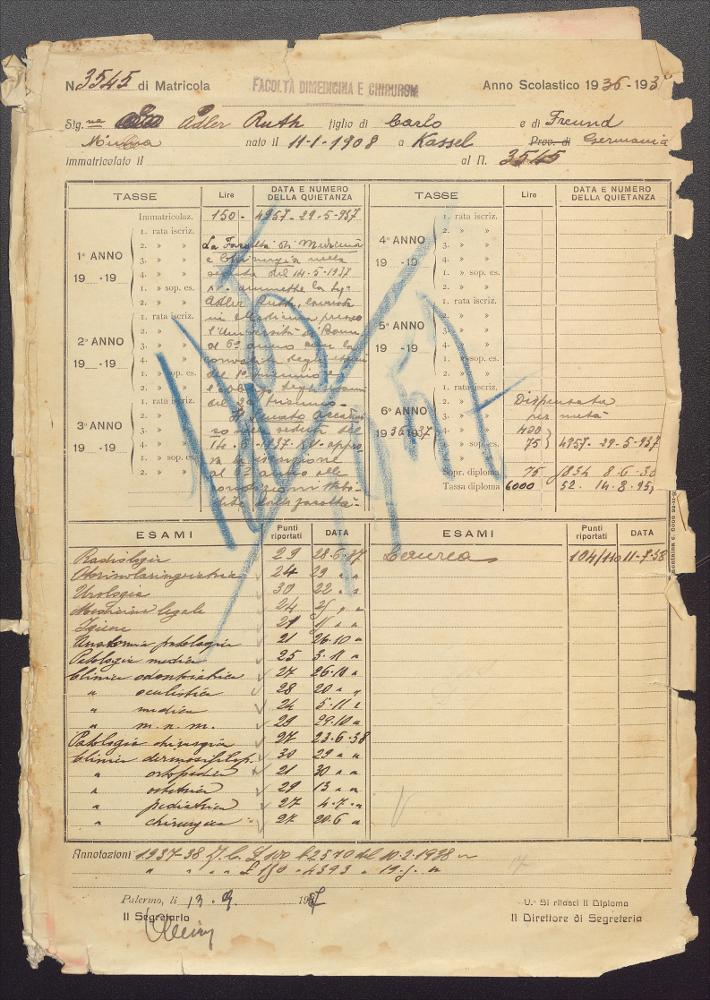 N 3545 di Matricola
FACOLTÀ DI MEDICINA E CHIRURGIA
Anno Scolastico 1936-193
Sig.na Adler Ruth figlio di Carlo e di Freund
Minna nato il 11-1-1908 a Kassel Prov. di Germania
immatricolato il al N. 3545
TASSE Lire DATA E NUMERO DELLA QUIETANZA
Immatricolaz. 150 - 4957 - 29-5-937
1. rata iscriz.
2. » » La Facoltà di Medicina
1° ANNO 3. » » e Chirurgia nella
19 .-19 4. » » seduta del 14-5-1937
1. » sop. es. ammette la Sig.
2. » » Adler Ruth, laureata
1. rata iscriz. in Medicina presso
2. » » l'Università di Bonn
2° ANNO 3. » » al 6° anno con la
19 .-19 4. » » convalida degli esami
1. » sop. es. del 1° triennio e
2. » » l'obbligo degli esami
1. rata iscriz. del 2° triennio.
2. » » Il Senato Accademi
3° ANNO 3. » » co nella seduta del
19 .-19 4. » » 14-5-1937 appro
1. » sop. es. va l'iscrizione
2. » » al 6° anno alle
condizioni stabi
lite dalla facoltà.
TASSE Lire DATA E NUMERO DELLA QUIETANZA
1. rata iscriz.
2. » »
4° ANNO 3. » »
19 .-19 4. » »
1. » sop. es.
2. » »
1. rata iscriz.
2. » »
5° ANNO 3. » »
19 .-19 4. » »
1. » sop. es.
2. » »
1. rata iscriz. Dispensata
2. » » per metà
6° ANNO 3. » » 400
19 36 1937 sop. es. 75 4957 - 29-5-937
Sopr. diploma 75 1834 8-6-38
Tassa diploma 6000 52. 14-8-95
ESAMI Punti riportati DATA
Radiologia 29 28-6-37
Otorinolaringoiatria 24 29 " "
Urologia 30 22 " "
Medicina legale 24 25 " "
Igiene 27 " "
Anatomia patologica 21 26-10 "
Patologia medica 25 3-11 "
Clinica odontoiatrica 27 26-10 "
" oculistica 28 20 " "
" medica 24 5-11 "
" m. n. m. 29 29-10 "
Patologia chirurgia 27 23-6-38
Clinica dermosifilop. 30 29 " "
" ortopedica 21 30 " "
" ostetrica 29 13 " "
" pediatrica 27 4-7 "
" chirurgica 27 20-6 "
ESAMI Punti riportati DATA
Laurea 104/110 11-7-38
Annotazioni 1937-38 £ 100 2570 del 10-2-1938
" " £ 150 - 4393
Palermo, li 13 9 19
Il Segretario
V.° Si rilasci il Diploma
Il Direttore di Segreteria